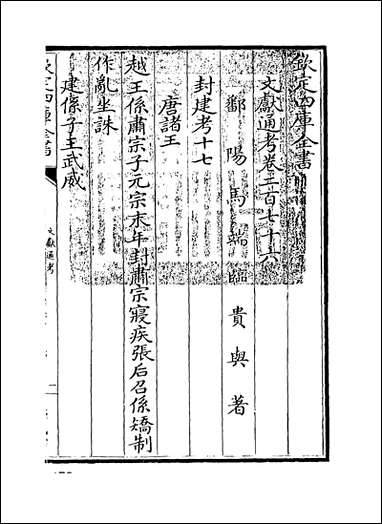 欽定四庫全書
文獻通考卷二百七十六
鄱陽馬端臨貴與著
封建考十七
唐諸王
越王係肅宗子元宗末年封肅宗寢疾張后召係矯制
作亂坐誅
建係子王武威
欽定四庫全書
文獻通考